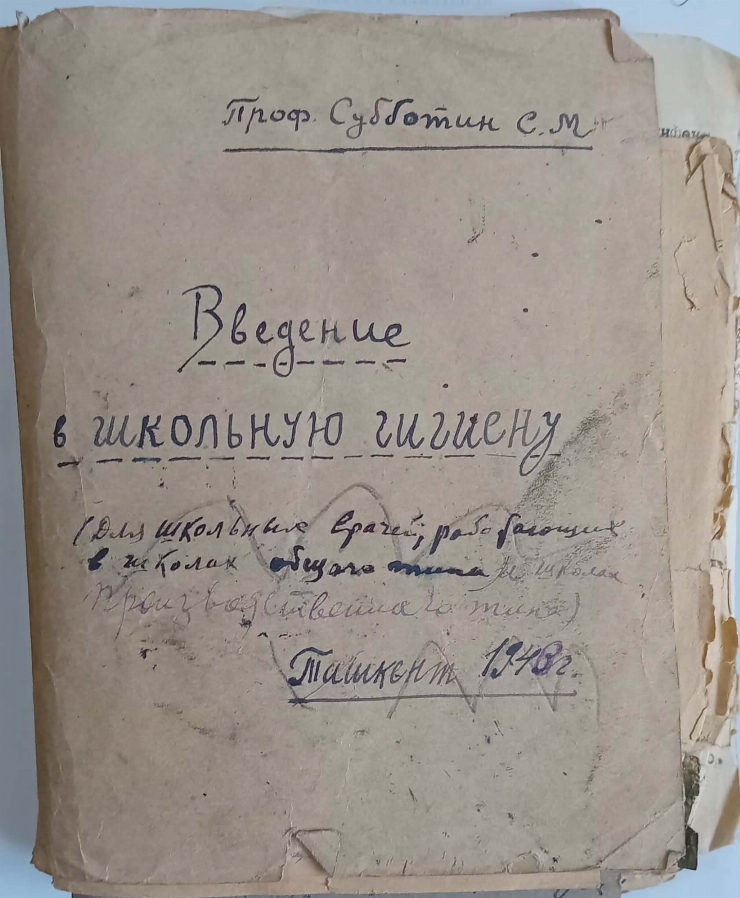 Проф. Субботин С.М
Введение
в школьную гигиену
(Для школьных врачей, работающих
в школах общего типа и школах
производственного типа)
Ташкент 1948г.